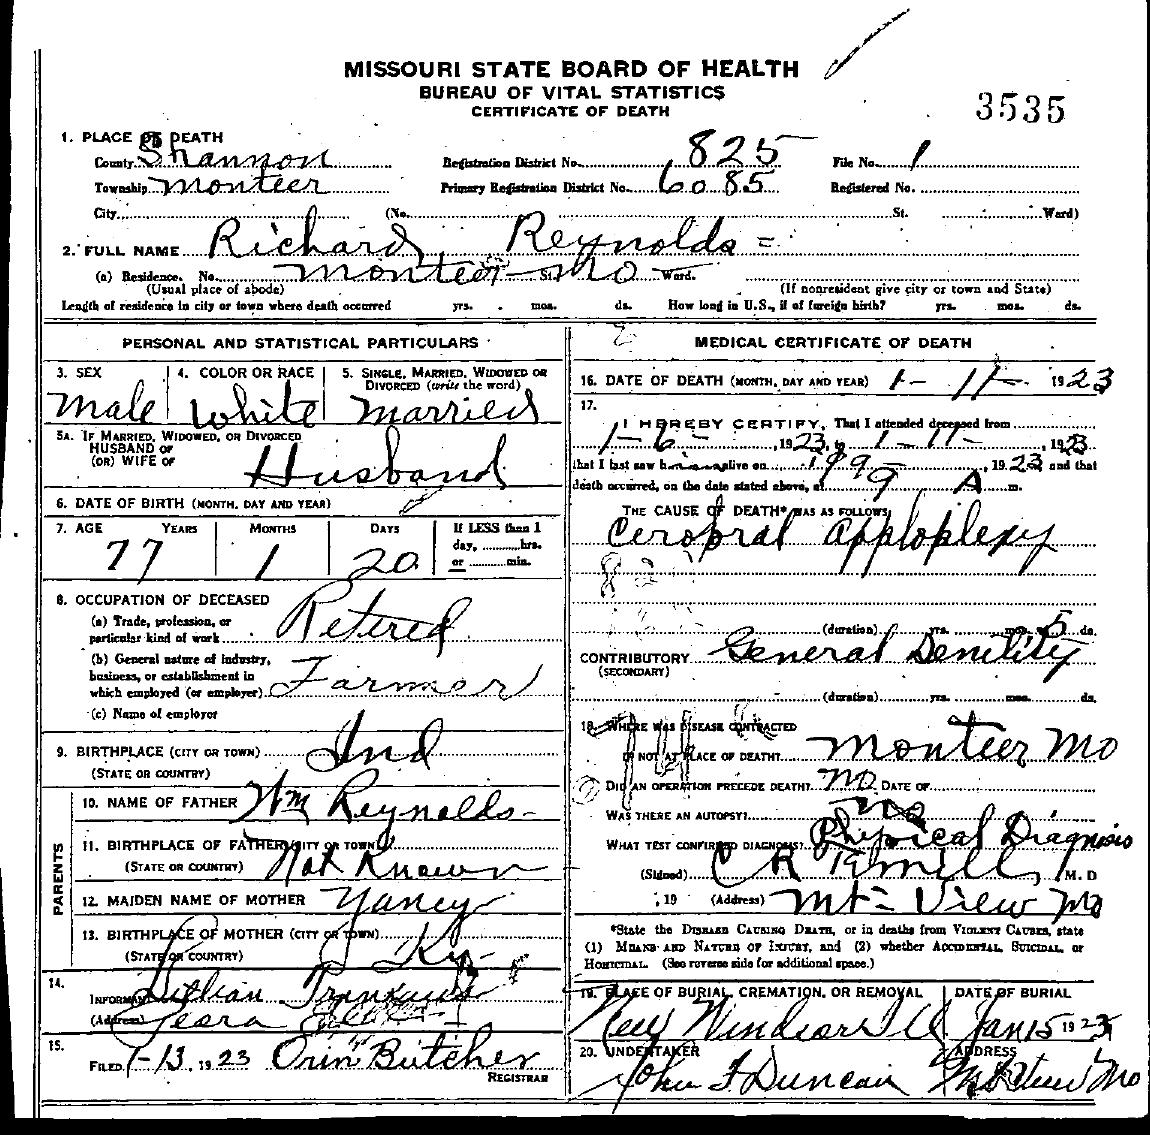 MISSOURI STATE BOARD OF HEALTH
BUREAU OF VITAL STATISTICS
CERTIFICATE OF DEATH
3535
1. PLACE OF DEATH
County Shannon Registration District No. 825 File No. 1
Township Monteer Primary Registration District No. 6085 Registered No.
City (No. St. Ward)
2. FULL NAME Richard Reynolds
(a) Residence. No. Monteer St. Mo Ward.
(Usual place of abode) (If nonresident give city or town and State)
Length of residence in city or town where death occurred yrs. mos. ds. How long in U.S., if of foreign birth? yrs. mos. ds.
PERSONAL AND STATISTICAL PARTICULARS
3. SEX 4. COLOR OR RACE 5. SINGLE, MARRIED, WIDOWED OR
DIVORCED (write the word)
Male White Married
5A. IF MARRIED, WIDOWED, OR DIVORCED
HUSBAND OF
(OR) WIFE OF Husband
6. DATE OF BIRTH (MONTH, DAY AND YEAR)
7. AGE YEARS MONTHS DAYS If LESS than 1
day, hrs.
or min.
77 1 20
8. OCCUPATION OF DECEASED
(a) Trade, profession, or
particular kind of work Retired
(b) General nature of industry,
business, or establishment in
which employed (or employer) Farmer
(c) Name of employer
9. BIRTHPLACE (CITY OR TOWN) Ind
(STATE OR COUNTRY)
PARENTS
10. NAME OF FATHER Wm Reynolds
11. BIRTHPLACE OF FATHER (CITY OR TOWN)
(STATE OR COUNTRY) Not Known
12. MAIDEN NAME OF MOTHER Nancy
13. BIRTHPLACE OF MOTHER (CITY OR TOWN)
(STATE OR COUNTRY) Ky
14.
INFORMANT Lillian
(Address)
15.
FILED 1-13, 1923 Orin Butcher
REGISTRAR
MEDICAL CERTIFICATE OF DEATH
16. DATE OF DEATH (MONTH, DAY AND YEAR) 1-11- 1923
17.
I HEREBY CERTIFY, That I attended deceased from
1-6-, 1923, to 1-11-, 1923
that I last saw h alive on, 1923 and that
death occurred, on the date stated above, at 9 A m.
THE CAUSE OF DEATH* WAS AS FOLLOWS:
Cerobral Apploplexy
(duration) yrs. mos. 5 ds.
CONTRIBUTORY General Senility
(SECONDARY)
(duration) yrs. mos. ds.
18. WHERE WAS DISEASE CONTRACTED
IF NOT AT PLACE OF DEATH? Monteer Mo
DID AN OPERATION PRECEDE DEATH? No DATE OF
WAS THERE AN AUTOPSY? No
WHAT TEST CONFIRMED DIAGNOSIS? Physical Diagnosis
(Signed) C R, M. D
, 19 (Address) Mt View Mo
*State the DISEASE CAUSING DEATH, or in deaths from VIOLENT CAUSES, state
(1) MEANS AND NATURE OF INJURY, and (2) whether ACCIDENTAL, SUICIDAL, or
HOMICIDAL. (See reverse side for additional space.)
19. PLACE OF BURIAL, CREMATION, OR REMOVAL DATE OF BURIAL
New Windsor Ill Jan 15 1923
20. UNDERTAKER ADDRESS
John F Duncan Mt View Mo